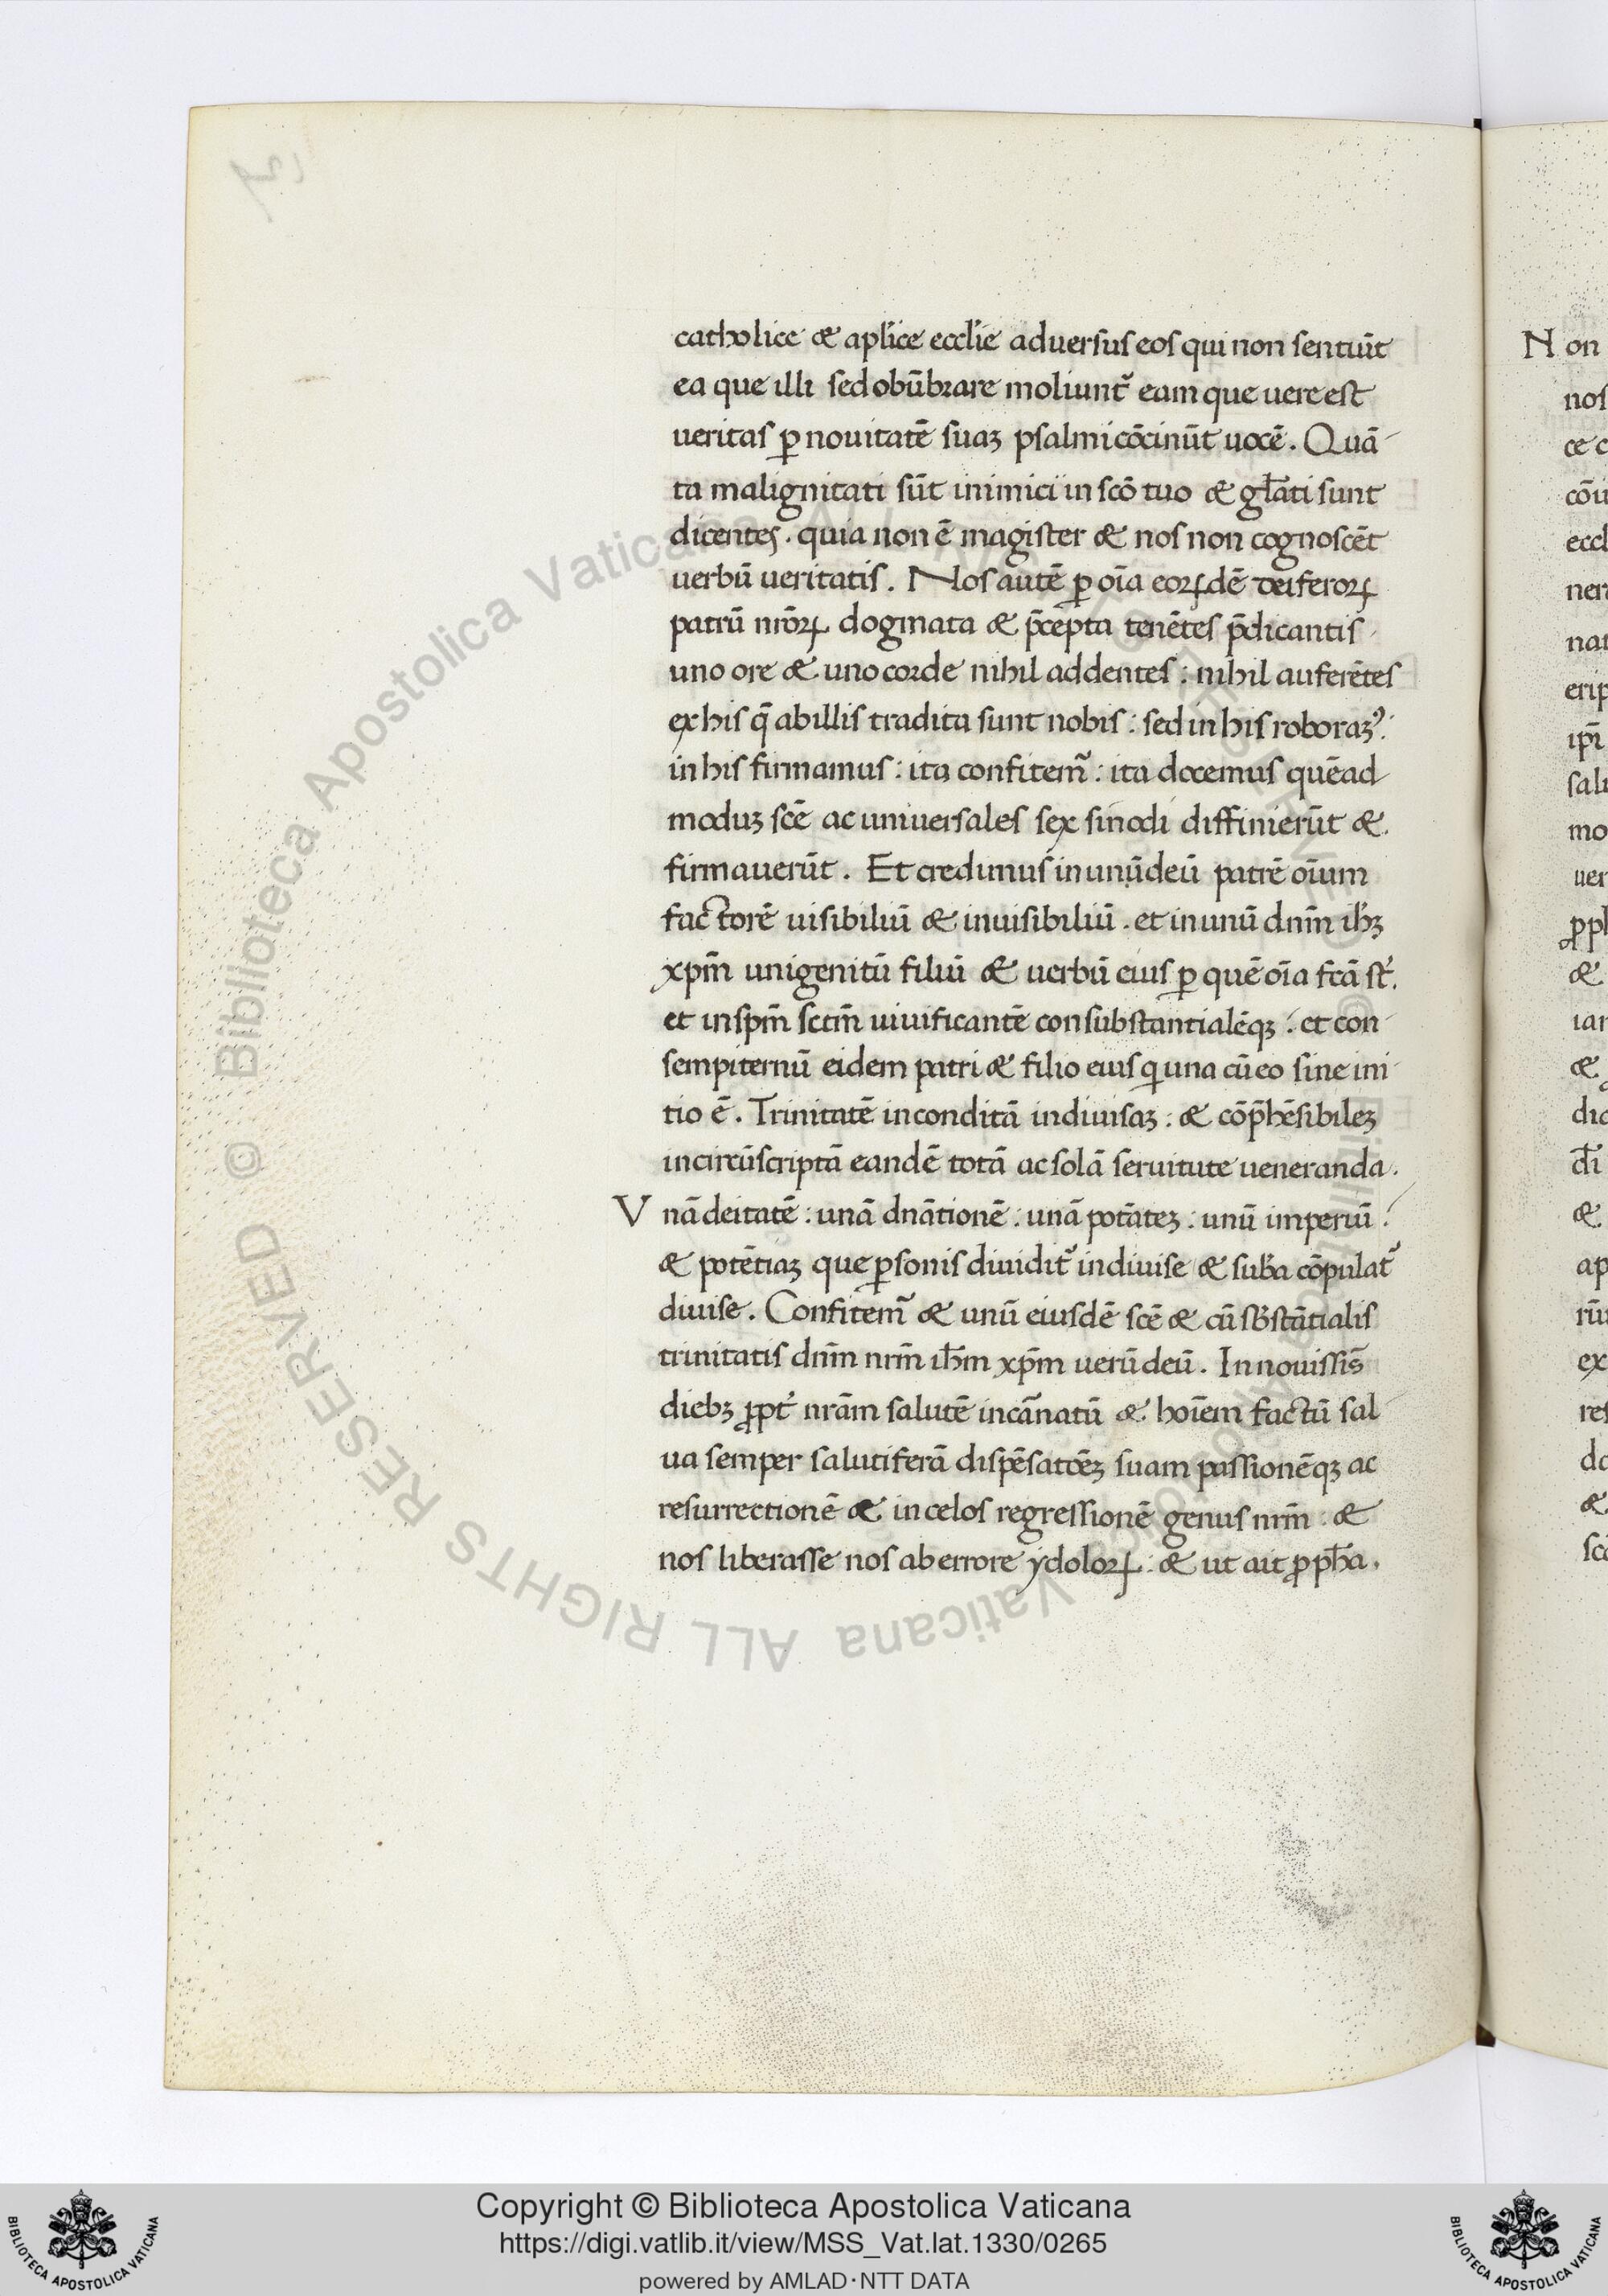 catholice & aplīce ecclīe aduersus eos qui non sentiūt
ea que illi sed obūbrare moliunt᷑ eam que uere est
ueritas ꝑ nouitatē suaꝫ psalmi cōcinūt uocē. Quā-
ta malignitati sūt inimici in scō tuo & gl̄ati sunt
dicentes. quia non ē magister & nos non cognoscēt
uerbū ueritatis. Nos autē ꝑ oīa eoꝝdē deiferoꝝ
patrū nr̄oꝝ dogmata & p̄cepta tenētes p̄dicantis
uno ore & uno corde nihil addentes : nihil auferētes
ex his q̄ ab illis tradita sunt nobis : sed in his roboraꝫ᷒ :
in his firmamus : ita confitem᷑ : ita docemus quēad-
moduꝫ scē ac uniuersales sex sinodi diffinierūt &
firmauerūt. Et credimus in unū deū patrē oīum
factorē uisibiliū & inuisibiliū . et in unū dnm̄ ih̄ꝫ
xpm̄ unigenitū filiū & uerbū eius ꝑ quē oīa fcā st̄.
et in spm̄ sctm̄ uiuificantē consubstantialēqꝫ : et con-
sempiternū eidem patri & filio eius qi una cū eo sine ini-
tio ē. Trinitatē inconditā indiuisaꝫ : & cōp̄hēsibileꝫ
incircūscriptā eandē totā ac solā seruitute ueneranda.
Vnā deitatē : unā dnātionē : unā potāteꝫ : unū imperiū :
& potētiaꝫ que ꝑsonis diuidit᷑ indiuise & sub̄a cōpulat᷑
diuise. Confitem᷑ & unū eiusdē scē & cū sb̄stātialis
trinitatis dnm̄ nrm̄ ih̄m xpm̄ uerū deū. In nouissis̄
diebꝫ ꝓpt᷑ nrām salutē incānatū & hoīem factū sal-
ua semper salutiferā dispēsatōēꝫ suam passionēqꝫ ac
resurrectionē & in celos regressionē genus nrm̄ : &
nos liberasse nos ab errore ydoloꝝ : & ut ait ꝓph̄a.
N on
nos
ce c
eccl
ner
nat
erip
ip̄i
sal
mo
uer
ꝓph
&
iar
&
dic
dī
&
ap
rū
ex
res
&
Copyright © Biblioteca Apostolica Vaticana
https://digi.vatlib.it/view/MSS_Vat.lat.1330/0265
powered by AMLAD·NTT DATA
BIBLIOTECA APOSTOLICA VATICANA
BIBLIOTECA APOSTOLICA VATICANA
© Biblioteca Apostolica Vaticana ALL RIGHTS RESERVED